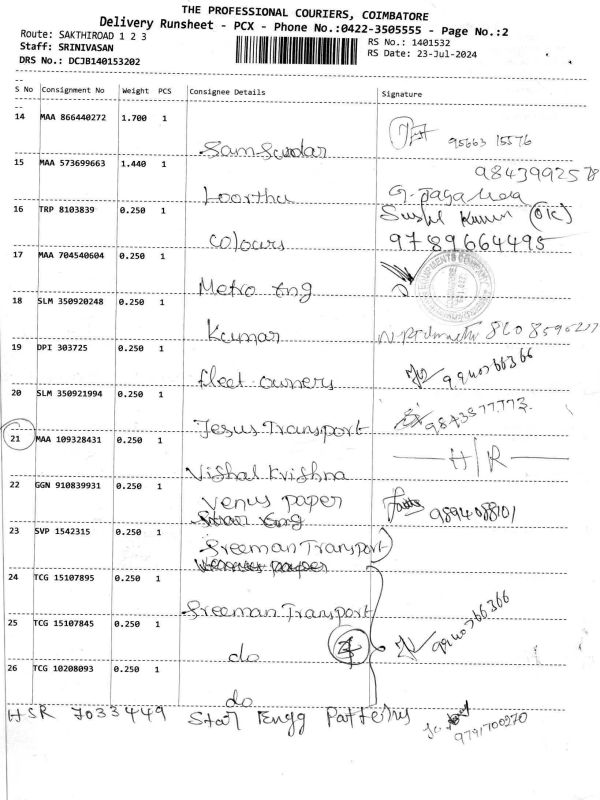 THE PROFESSIONAL COURIERS, COIMBATORE
Delivery Runsheet - PCX - Phone No.:0422-3505555 - Page No.:2
Route: SAKTHIROAD 1 2 3
RS No.: 1401532
Staff: SRINIVASAN
RS Date: 23-Jul-2024
DRS No.: DCJB140153202
S No Consignment No Weight PCS Consignee Details Signature
14 MAA 866440272 1.700 1
Sam Sundar 95663 15576
15 MAA 573699663 1.440 1
9843992578
Loorthu
16 TRP 8103839 0.250 1
Sushil Kumar (OK)
colours 9789664495
17 MAA 704540604 0.250 1
Metro Eng
18 SLM 350920248 0.250 1
Kumar
19 DPI 303725 0.250 1
fleet owners 9940766366
20 SLM 350921994 0.250 1
Jesus Transport
21 MAA 109328431 0.250 1
H/R
Vishal Krishna
22 GGN 910839931 0.250 1
Venus paper 9894088101
23 SVP 1542315 0.250 1
Sreeman Transport
24 TCG 15107895 0.250 1
Sreeman Transport
25 TCG 15107845 0.250 1
do 4 9940766366
26 TCG 10208093 0.250 1
do
HSR 7033449 Star Engg Patterns 9791700970